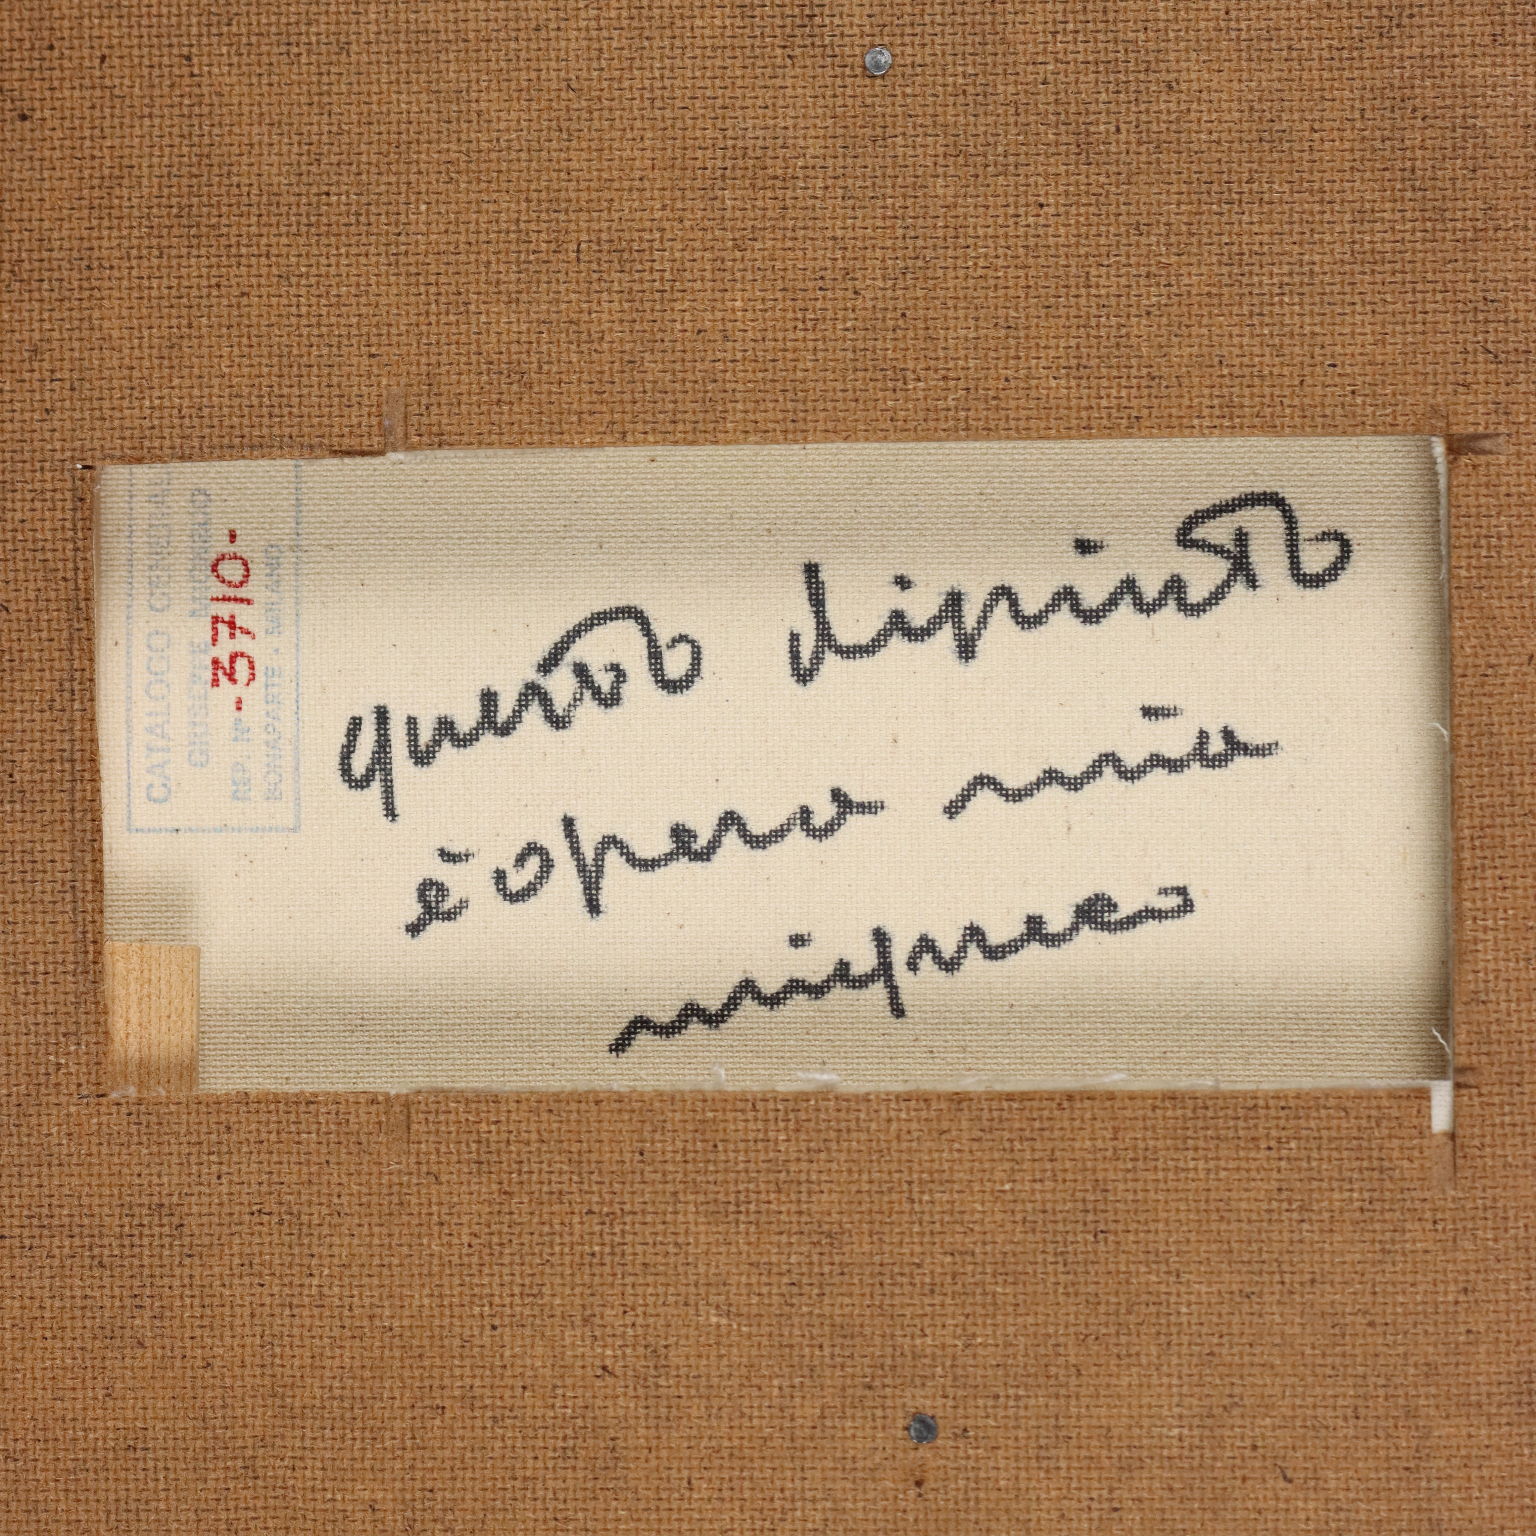 questo dipinto
è opera mia
migneco
CATALOGO GENERALE
GIUSEPPE MIGNECO
REP. N° -3710-
BONAPARTE - MILANO